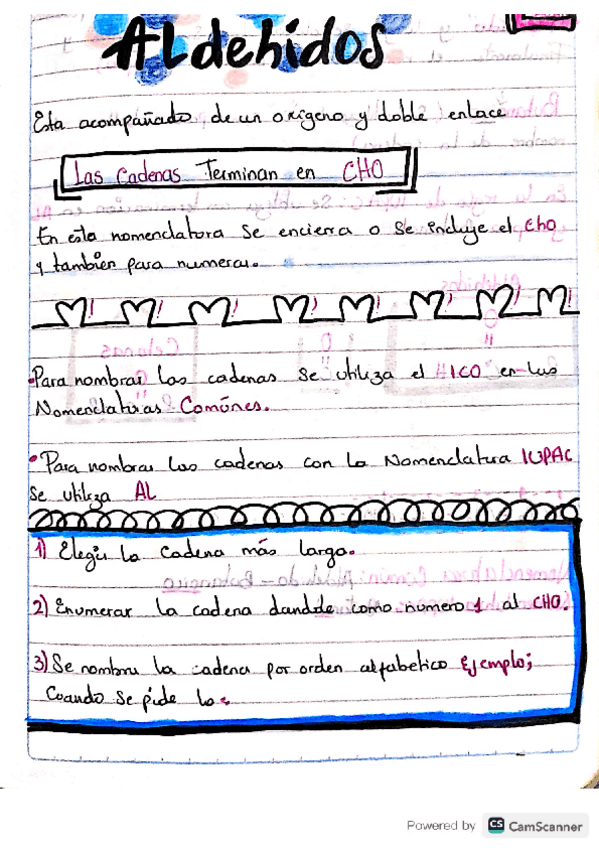 ALdehidos
Esta acompañado de un oxigeno y doble enlace
Las Cadenas Terminan en CHO
En esta nomenclatura se encierra o se incluye el cho
y también para numerar.
Para nombrar las cadenas se utiliza el ICO en las
Nomenclaturas Comúnes.
Para nombrar las cadenas con la Nomenclatura IUPAC
se utiliza AL
1) Elegir la cadena más larga.
2) Enumerar la cadena dandole como numero 1 al CHO.
3) Se nombra la cadena por orden alfabetico Ejemplo;
Cuando se pide la
Powered by CS CamScanner